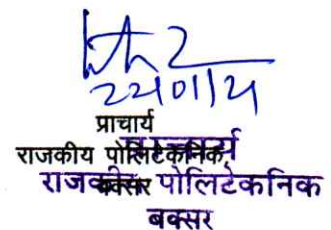 22/01/21
प्राचार्य
राजकीय पोलिटेकनिक,
बक्सर
प्राचार्य
राजकीय पोलिटेकनिक
बक्सर